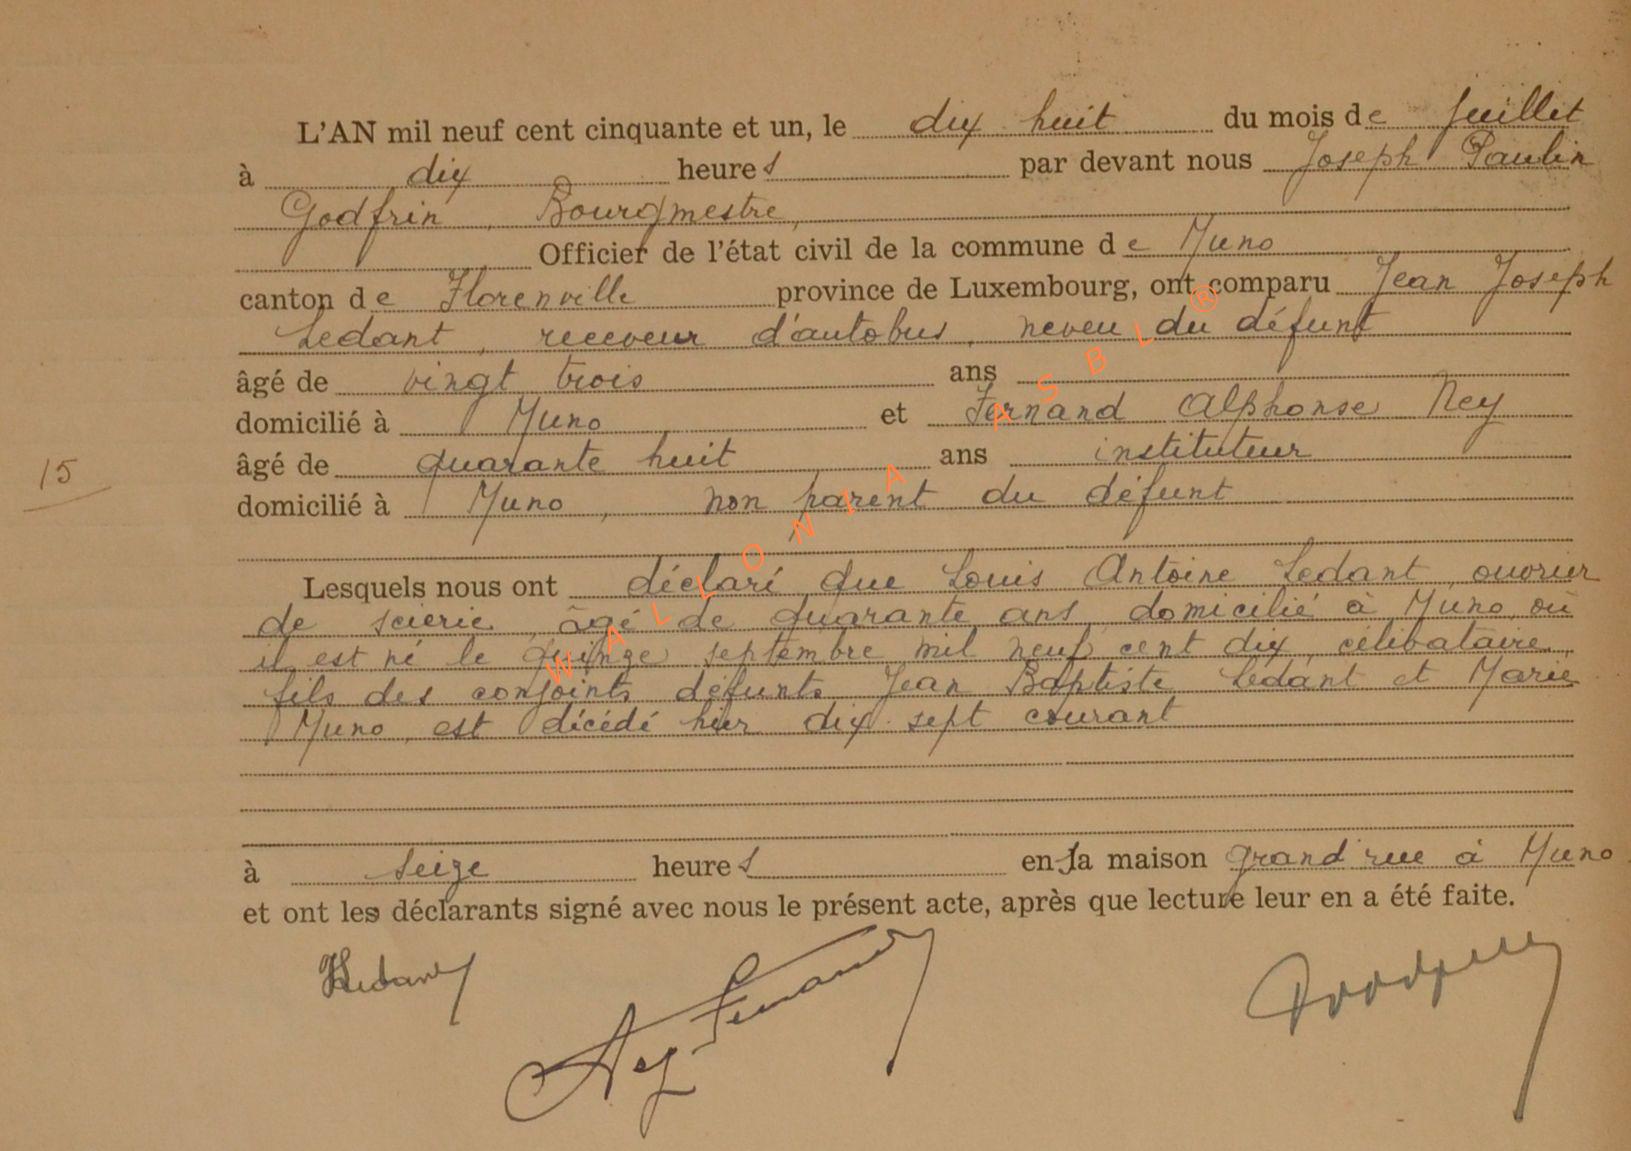 L'AN mil neuf cent cinquante et un, le dix huit du mois de Juillet
à dix heures par devant nous Joseph Paulin
Godfrin, Bourgmestre,
Officier de l'état civil de la commune de Muno
canton de Florenville province de Luxembourg, ont comparu Jean Joseph
Ledant, receveur d'autobus, neveu du défunt
âgé de vingt trois ans
domicilié à Muno et Fernand Alphonse Ney
âgé de quarante huit ans instituteur
15
domicilié à Muno, non parent du défunt
Lesquels nous ont déclaré que Louis Antoine Ledant, ouvrier
de scierie, âgé de quarante ans, domicilié à Muno, où
il est né le quinze septembre mil neuf cent dix, célibataire,
fils des conjoints défunts Jean Baptiste Ledant et Marie
Muno, est décédé hier dix-sept courant
à seize heures en la maison grand'rue à Muno
et ont les déclarants signé avec nous le présent acte, après que lecture leur en a été faite.
Ledant
Ney Fernand
WALLONIA ASBL ®